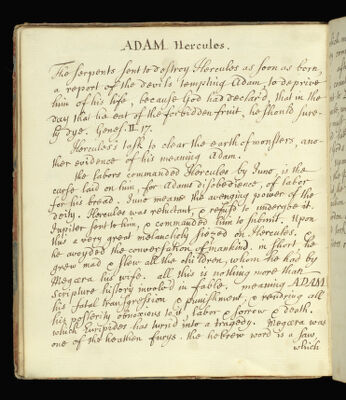 ADAM Hercules.
The serpents sent to destroy Hercules as soon as born,
a report of the devils tempting Adam to deprive
him of his life, because God had declar'd, that in the
day that he eat of the forbidden fruit, he should sure-
ly dye. Genes. II. 17.
Hercules's task to clear the earth of monsters, ano-
ther evidence of his meaning adam.
the labors commanded Hercules by Juno, is the
curse laid on him, for Adams disobedience, of labor
for his bread. Juno means the avenging power of the
deity. Hercules was reluctant, & refus'd to undergoe it.
Jupiter sent to him, & commanded him to submit. Upon
this a very great melancholy siezed on Hercules. &
he avoyded the conversation of mankind. in short he
grew mad & slew all the children, whom he had by
Megæra his wife. all this is nothing more than
scripture history involv'd in fable. meaning ADAM
his fatal transgression & punishment, & rendring all
his posterity obnoxious to it, labor & sorrow & death.
which Euripides has turn'd into a tragedy. Megæra was
one of the heathen furys. the hebrew word is a saw,
which